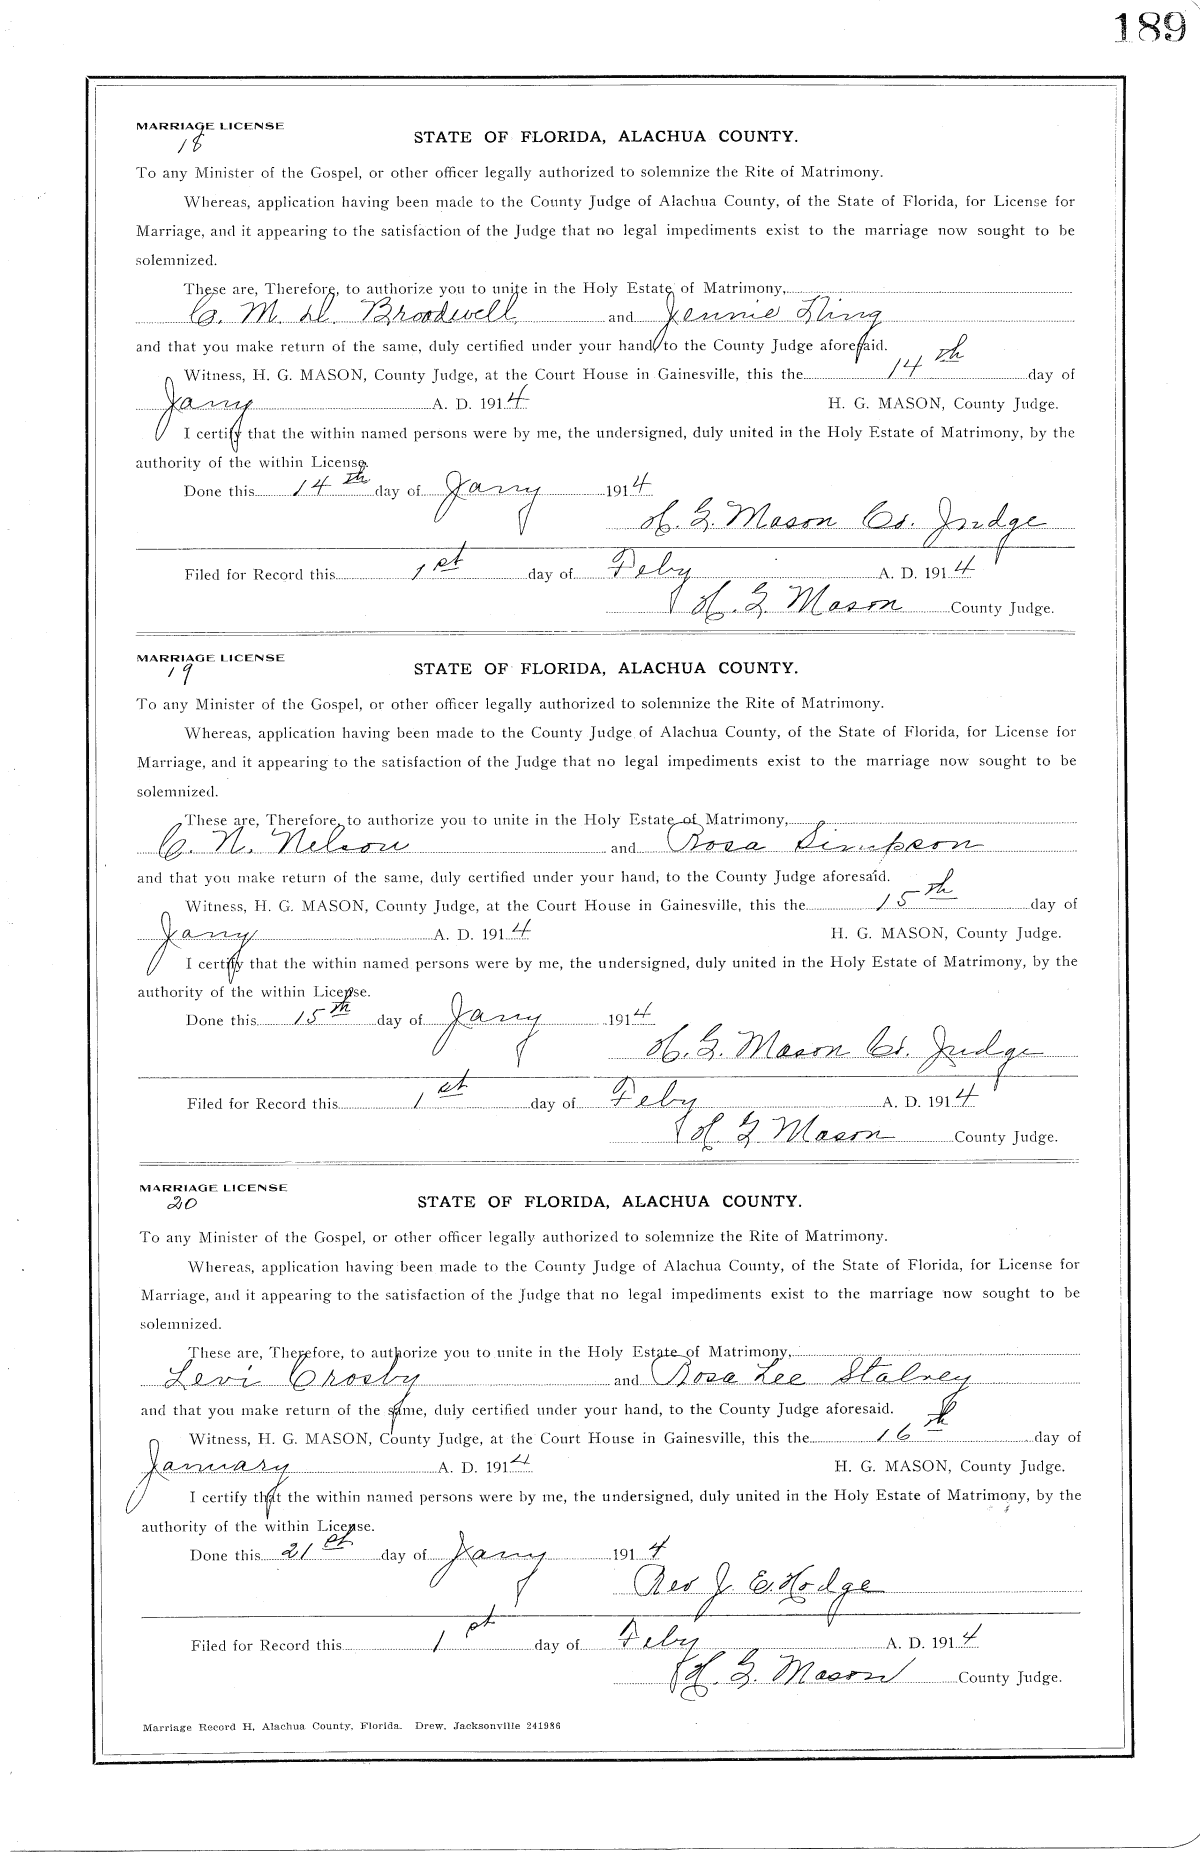 189
MARRIAGE LICENSE
18
STATE OF FLORIDA, ALACHUA COUNTY.
To any Minister of the Gospel, or other officer legally authorized to solemnize the Rite of Matrimony.
Whereas, application having been made to the County Judge of Alachua County, of the State of Florida, for License for
Marriage, and it appearing to the satisfaction of the Judge that no legal impediments exist to the marriage now sought to be
solemnized.
These are, Therefore, to authorize you to unite in the Holy Estate of Matrimony,
C. M. D. Broadwell and Jennie
and that you make return of the same, duly certified under your hand, to the County Judge aforesaid.
Witness, H. G. MASON, County Judge, at the Court House in Gainesville, this the 14th day of
Jany A. D. 1914 H. G. MASON, County Judge.
I certify that the within named persons were by me, the undersigned, duly united in the Holy Estate of Matrimony, by the
authority of the within License.
Done this 14th day of Jany 1914
H. G. Mason Co. Judge
Filed for Record this 1st day of Feby A. D. 1914
H. G. Mason County Judge.
MARRIAGE LICENSE
19
STATE OF FLORIDA, ALACHUA COUNTY.
To any Minister of the Gospel, or other officer legally authorized to solemnize the Rite of Matrimony.
Whereas, application having been made to the County Judge of Alachua County, of the State of Florida, for License for
Marriage, and it appearing to the satisfaction of the Judge that no legal impediments exist to the marriage now sought to be
solemnized.
These are, Therefore, to authorize you to unite in the Holy Estate of Matrimony,
C. N. Nelson and Rosa Simpson
and that you make return of the same, duly certified under your hand, to the County Judge aforesaid.
Witness, H. G. MASON, County Judge, at the Court House in Gainesville, this the 15th day of
Jany A. D. 1914 H. G. MASON, County Judge.
I certify that the within named persons were by me, the undersigned, duly united in the Holy Estate of Matrimony, by the
authority of the within License.
Done this 15th day of Jany 1914
H. G. Mason Co. Judge
Filed for Record this 1st day of Feby A. D. 1914
H G Mason County Judge.
MARRIAGE LICENSE
20
STATE OF FLORIDA, ALACHUA COUNTY.
To any Minister of the Gospel, or other officer legally authorized to solemnize the Rite of Matrimony.
Whereas, application having been made to the County Judge of Alachua County, of the State of Florida, for License for
Marriage, and it appearing to the satisfaction of the Judge that no legal impediments exist to the marriage now sought to be
solemnized.
These are, Therefore, to authorize you to unite in the Holy Estate of Matrimony,
Levi Crosby and Rosa Lee Stalvey
and that you make return of the same, duly certified under your hand, to the County Judge aforesaid.
Witness, H. G. MASON, County Judge, at the Court House in Gainesville, this the 16th day of
January A. D. 1914 H. G. MASON, County Judge.
I certify that the within named persons were by me, the undersigned, duly united in the Holy Estate of Matrimony, by the
authority of the within License.
Done this 21st day of Jany 1914
Rev J. E. Hodge
Filed for Record this 1st day of Feby A. D. 1914
H. G. Mason County Judge.
Marriage Record H, Alachua County, Florida. Drew, Jacksonville 241986